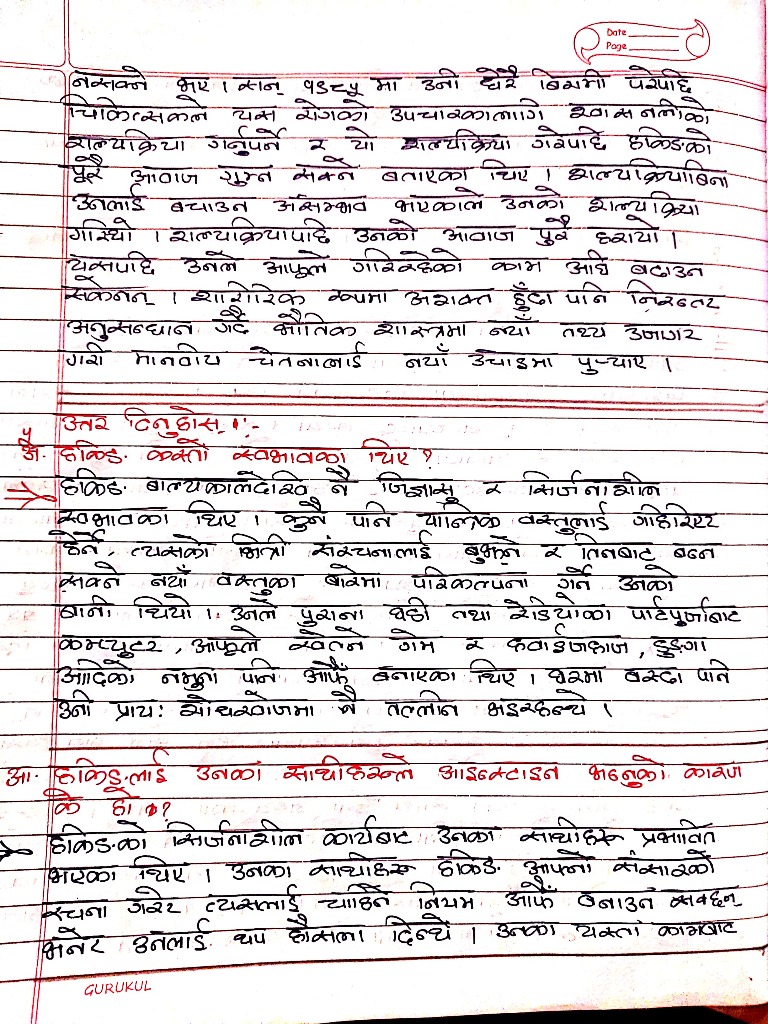 Date
Page
नसक्ने भए । सन् १९८५ मा उनी धेरै बिरामी परेपछि
चिकित्सकले यस रोगको उपचारकालागि श्वासनलीको
शल्यक्रिया गर्नुपर्ने र यो शल्यक्रिया गरेपछि हकिङको
पूरै आवाज गुम्न सक्ने बताएका थिए । शल्यक्रियाबिना
उनलाई बचाउन असम्भव भएकाले उनको शल्यक्रिया
गरियो । शल्यक्रियापछि उनको आवाज पुरै हरायो ।
यसपछि उनले आफूले गरिरहेको काम अघि बढाउन
सकेनन् । शारीरिक रूपमा अशक्त हुँदा पनि निरन्तर
अनुसन्धान गर्दै भौतिक शास्त्रमा नयाँ तथ्य उजागर
गरी मानवीय चेतनालाई नयाँ उचाइमा पुऱ्याए ।
उत्तर दिनुहोस् ।:-
हकिङ कस्तो स्वभावका थिए ?
हकिङ बाल्यकालदेखि नै जिज्ञासु र सिर्जनाशील
स्वभावका थिए । कुनै पनि यान्त्रिक वस्तुलाई गहिरिएर
हेर्ने, त्यसको भित्री संरचनालाई बुझ्ने र तिनबाट बन्न
सक्ने नयाँ वस्तुका बारेमा परिकल्पना गर्ने उनको
बानी थियो । उनले पुराना घडी तथा रेडियोका पार्टपुर्जाबाट
कम्प्युटर, आफूले खेल्ने गेम र हवाईजहाज, डुङ्गा
आदिको नमुना पनि आफैँ बनाएका थिए । घरमा बस्दा पनि
उनी प्राय: सोचखोजमा नै तल्लीन भइरहन्थे ।
आ. हकिङलाई उनका साथीहरूले आइन्स्टाइन भन्नुको कारण
के हो ?
हकिङको सिर्जनाशील कार्यबाट उनका साथीहरू प्रभावित
भएका थिए । उनका साथीहरू हकिङ आफ्नो संसारको
रचना गरेर त्यसलाई चाहिने नियम आफैँ बनाउन सक्छन्
भनेर उनलाई थप हौसला दिन्थे । उनका यस्ता कामबाट
GURUKUL